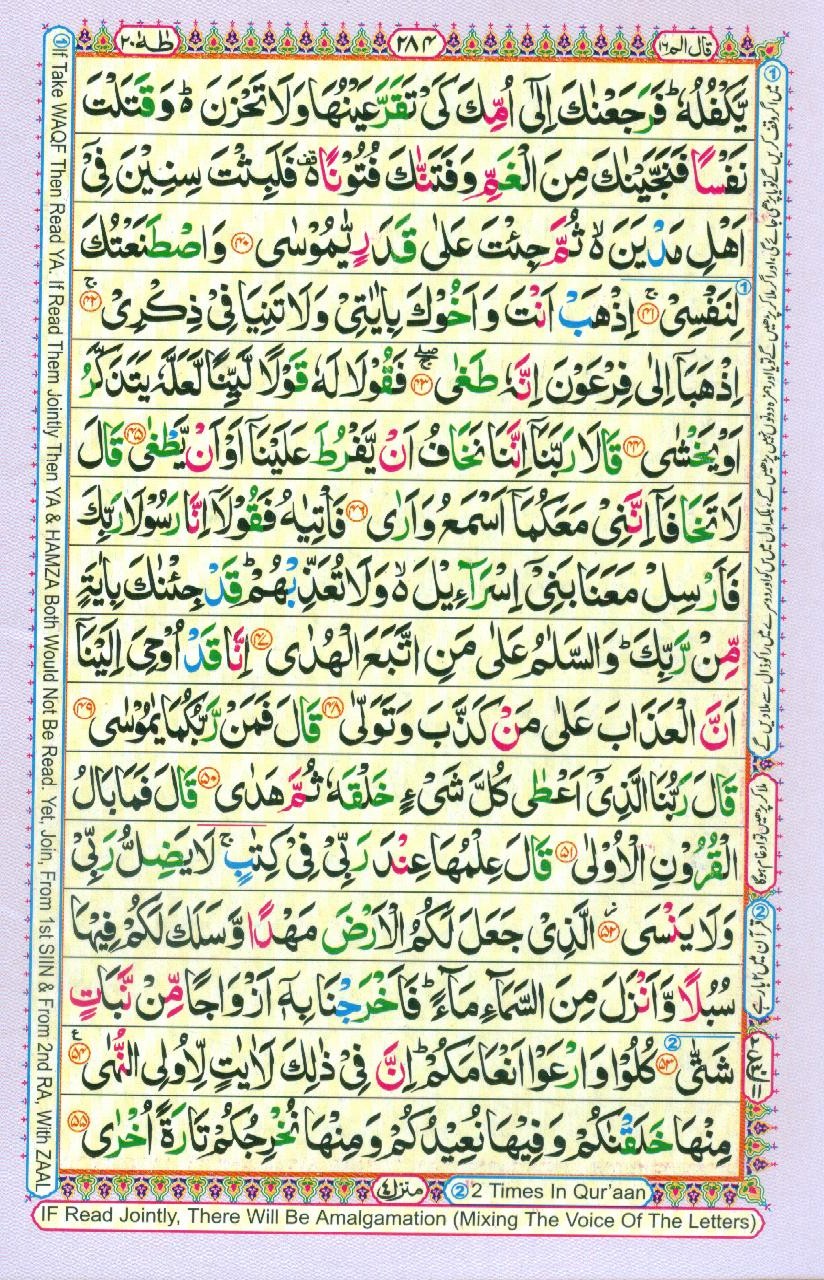 قال الم ١٦
٢٨٤
طٰهٰ ٢٠
يَّكْفُلُهٗ ؕ فَرَجَعْنٰكَ اِلٰٓى اُمِّكَ كَىْ تَقَرَّ عَيْنُهَا وَلَا تَحْزَنَ ۬ؕ وَقَتَلْتَ
نَفْسًا فَنَجَّيْنٰكَ مِنَ الْغَمِّ وَفَتَنّٰكَ فُتُوْنًا ۬ۥ قف فَلَبِثْتَ سِنِيْنَ فِىْٓ
اَهْلِ مَدْيَنَ ۙ۬ ثُمَّ جِئْتَ عَلٰى قَدَرٍ يّٰمُوْسٰى ﴿۴۰﴾ وَاصْطَنَعْتُكَ
لِنَفْسِىْ ۚ﴿۴۱﴾ اِذْهَبْ اَنْتَ وَاَخُوْكَ بِاٰيٰتِىْ وَلَا تَنِيَا فِىْ ذِكْرِىْ ۚ﴿۴۲﴾
اِذْهَبَاۤ اِلٰى فِرْعَوْنَ اِنَّهٗ طَغٰى ۖۚ﴿۴۳﴾ فَقُوْلَا لَهٗ قَوْلًا لَّيِّنًا لَّعَلَّهٗ يَتَذَكَّرُ
اَوْ يَخْشٰى ﴿۴۴﴾ قَالَا رَبَّنَاۤ اِنَّنَا نَخَافُ اَنْ يَّفْرُطَ عَلَيْنَاۤ اَوْ اَنْ يَّطْغٰى ﴿۴۵﴾ قَالَ
لَا تَخَافَاۤ اِنَّنِىْ مَعَكُمَاۤ اَسْمَعُ وَاَرٰى ﴿۴۶﴾ فَاْتِيٰهُ فَقُوْلَاۤ اِنَّا رَسُوْلَا رَبِّكَ
فَاَرْسِلْ مَعَنَا بَنِىْۤ اِسْرَآءِيْلَ ۙ۬ وَلَا تُعَذِّبْهُمْ ؕ قَدْ جِئْنٰكَ بِاٰيَةٍ
مِّنْ رَّبِّكَ ؕ وَالسَّلٰمُ عَلٰى مَنِ اتَّبَعَ الْهُدٰى ﴿۴۷﴾ اِنَّا قَدْ اُوْحِىَ اِلَيْنَاۤ
اَنَّ الْعَذَابَ عَلٰى مَنْ كَذَّبَ وَتَوَلّٰى ﴿۴۸﴾ قَالَ فَمَنْ رَّبُّكُمَا يٰمُوْسٰى ﴿۴۹﴾
قَالَ رَبُّنَا الَّذِىْۤ اَعْطٰى كُلَّ شَىْءٍ خَلْقَهٗ ثُمَّ هَدٰى ﴿۵۰﴾ قَالَ فَمَا بَالُ
الْقُرُوْنِ الْاُوْلٰى ﴿۵۱﴾ قَالَ عِلْمُهَا عِنْدَ رَبِّىْ فِىْ كِتٰبٍ ۚ لَا يَضِلُّ رَبِّىْ
وَلَا يَنْسَى ﴿۵۲﴾ الَّذِىْ جَعَلَ لَكُمُ الْاَرْضَ مَهْدًا وَّسَلَكَ لَكُمْ فِيْهَا
سُبُلًا وَّاَنْزَلَ مِنَ السَّمَآءِ مَآءً ؕ فَاَخْرَجْنَا بِهٖۤ اَزْوَاجًا مِّنْ نَّبَاتٍ
شَتّٰى ﴿۵۳﴾ كُلُوْا وَارْعَوْا اَنْعَامَكُمْ ؕ اِنَّ فِىْ ذٰلِكَ لَاٰيٰتٍ لِّاُولِى النُّهٰى ﴿۵۴﴾ ع
مِنْهَا خَلَقْنٰكُمْ وَفِيْهَا نُعِيْدُكُمْ وَمِنْهَا نُخْرِجُكُمْ تَارَةً اُخْرٰى ﴿۵۵﴾
① If Take WAQF Then Read YA. If Read Them Jointly Then YA & HAMZA Both Would Not Be Read. Yet, Join, From 1st SIIN & From 2nd RA, With ZAAL
ملا کر پڑھیں تو ادغام ہوگا
② قرآن میں ٢ بار ہے
منزل ٤
② 2 Times In Qur'aan
IF Read Jointly, There Will Be Amalgamation (Mixing The Voice Of The Letters)